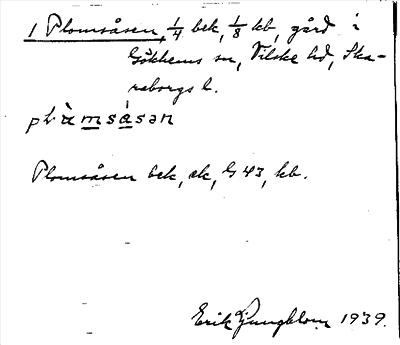 1 Plomsåsen, 1/4 bek, 1/8 kb, gård i
Gökhems sn, Vilske hd, Ska-
raborgs l.
plὰmsàsən
Plomsåsen bek, ek, G 43, kb.
Erik Ljungblom 1939.